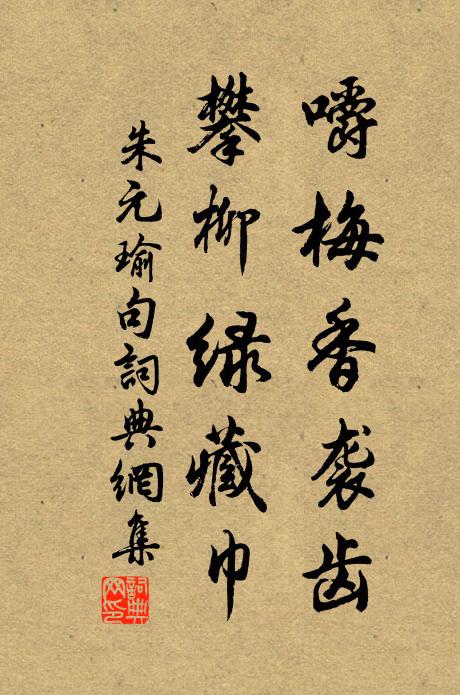 嚼梅香袭齿
攀柳绿藏巾
朱元瑜句詞典網集
詞典网印